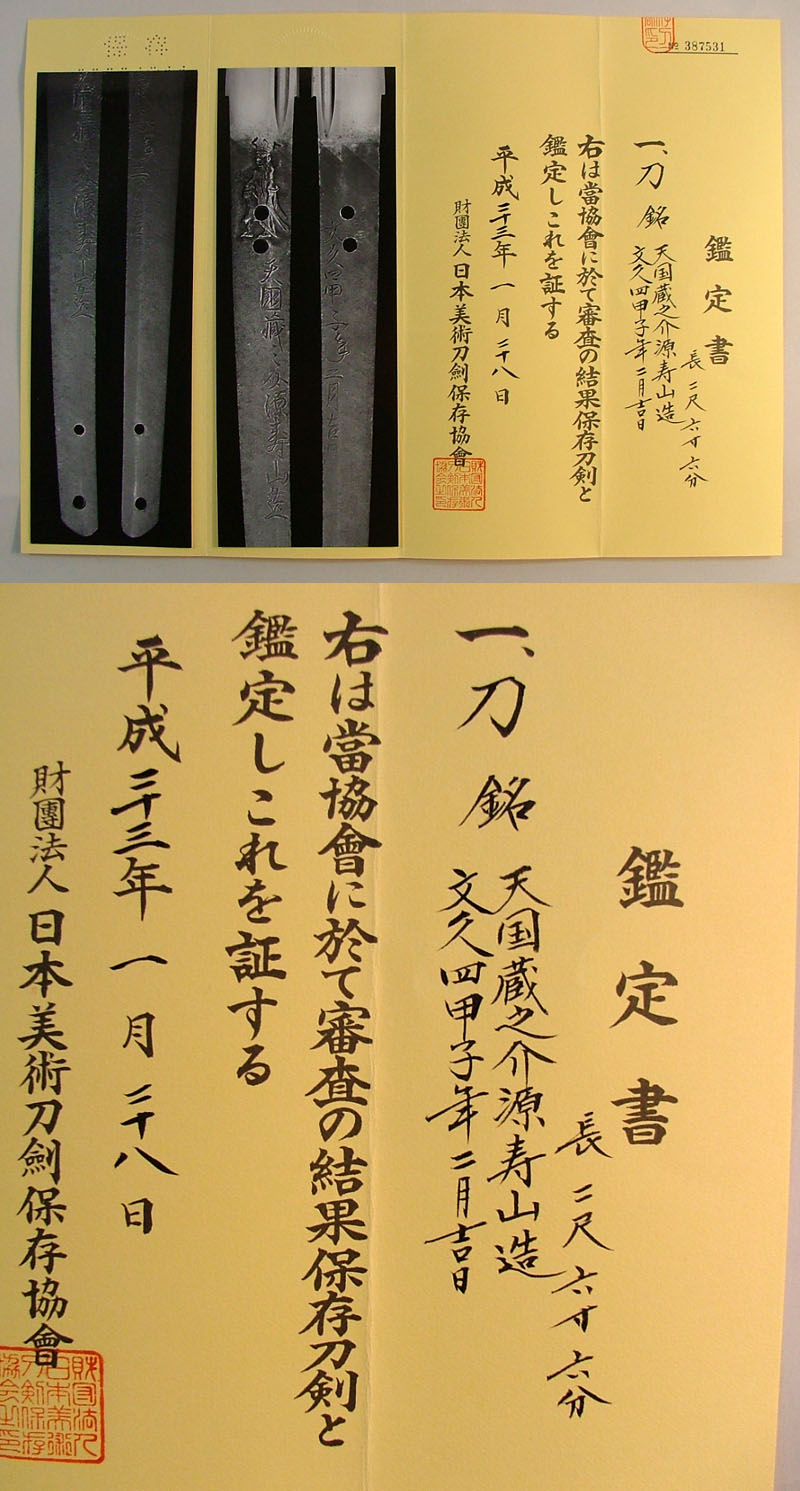 № 387531
鑑定書
一、刀 銘 天国蔵之介源寿山造
文久四甲子年二月吉日
長二尺六寸六分
右は當協會に於て審査の結果保存刀剣と
鑑定しこれを証する
平成二十三年一月二十八日
財團法人日本美術刀劍保存協會
天國藏之介源寿山造
鑑定書
長二尺六寸六分
一、刀 銘 天国蔵之介源寿山造
文久四甲子年二月吉日
右は當協會に於て審査の結果保存刀剣と
鑑定しこれを証する
平成二十三年一月二十八日
財團法人日本美術刀劍保存協會